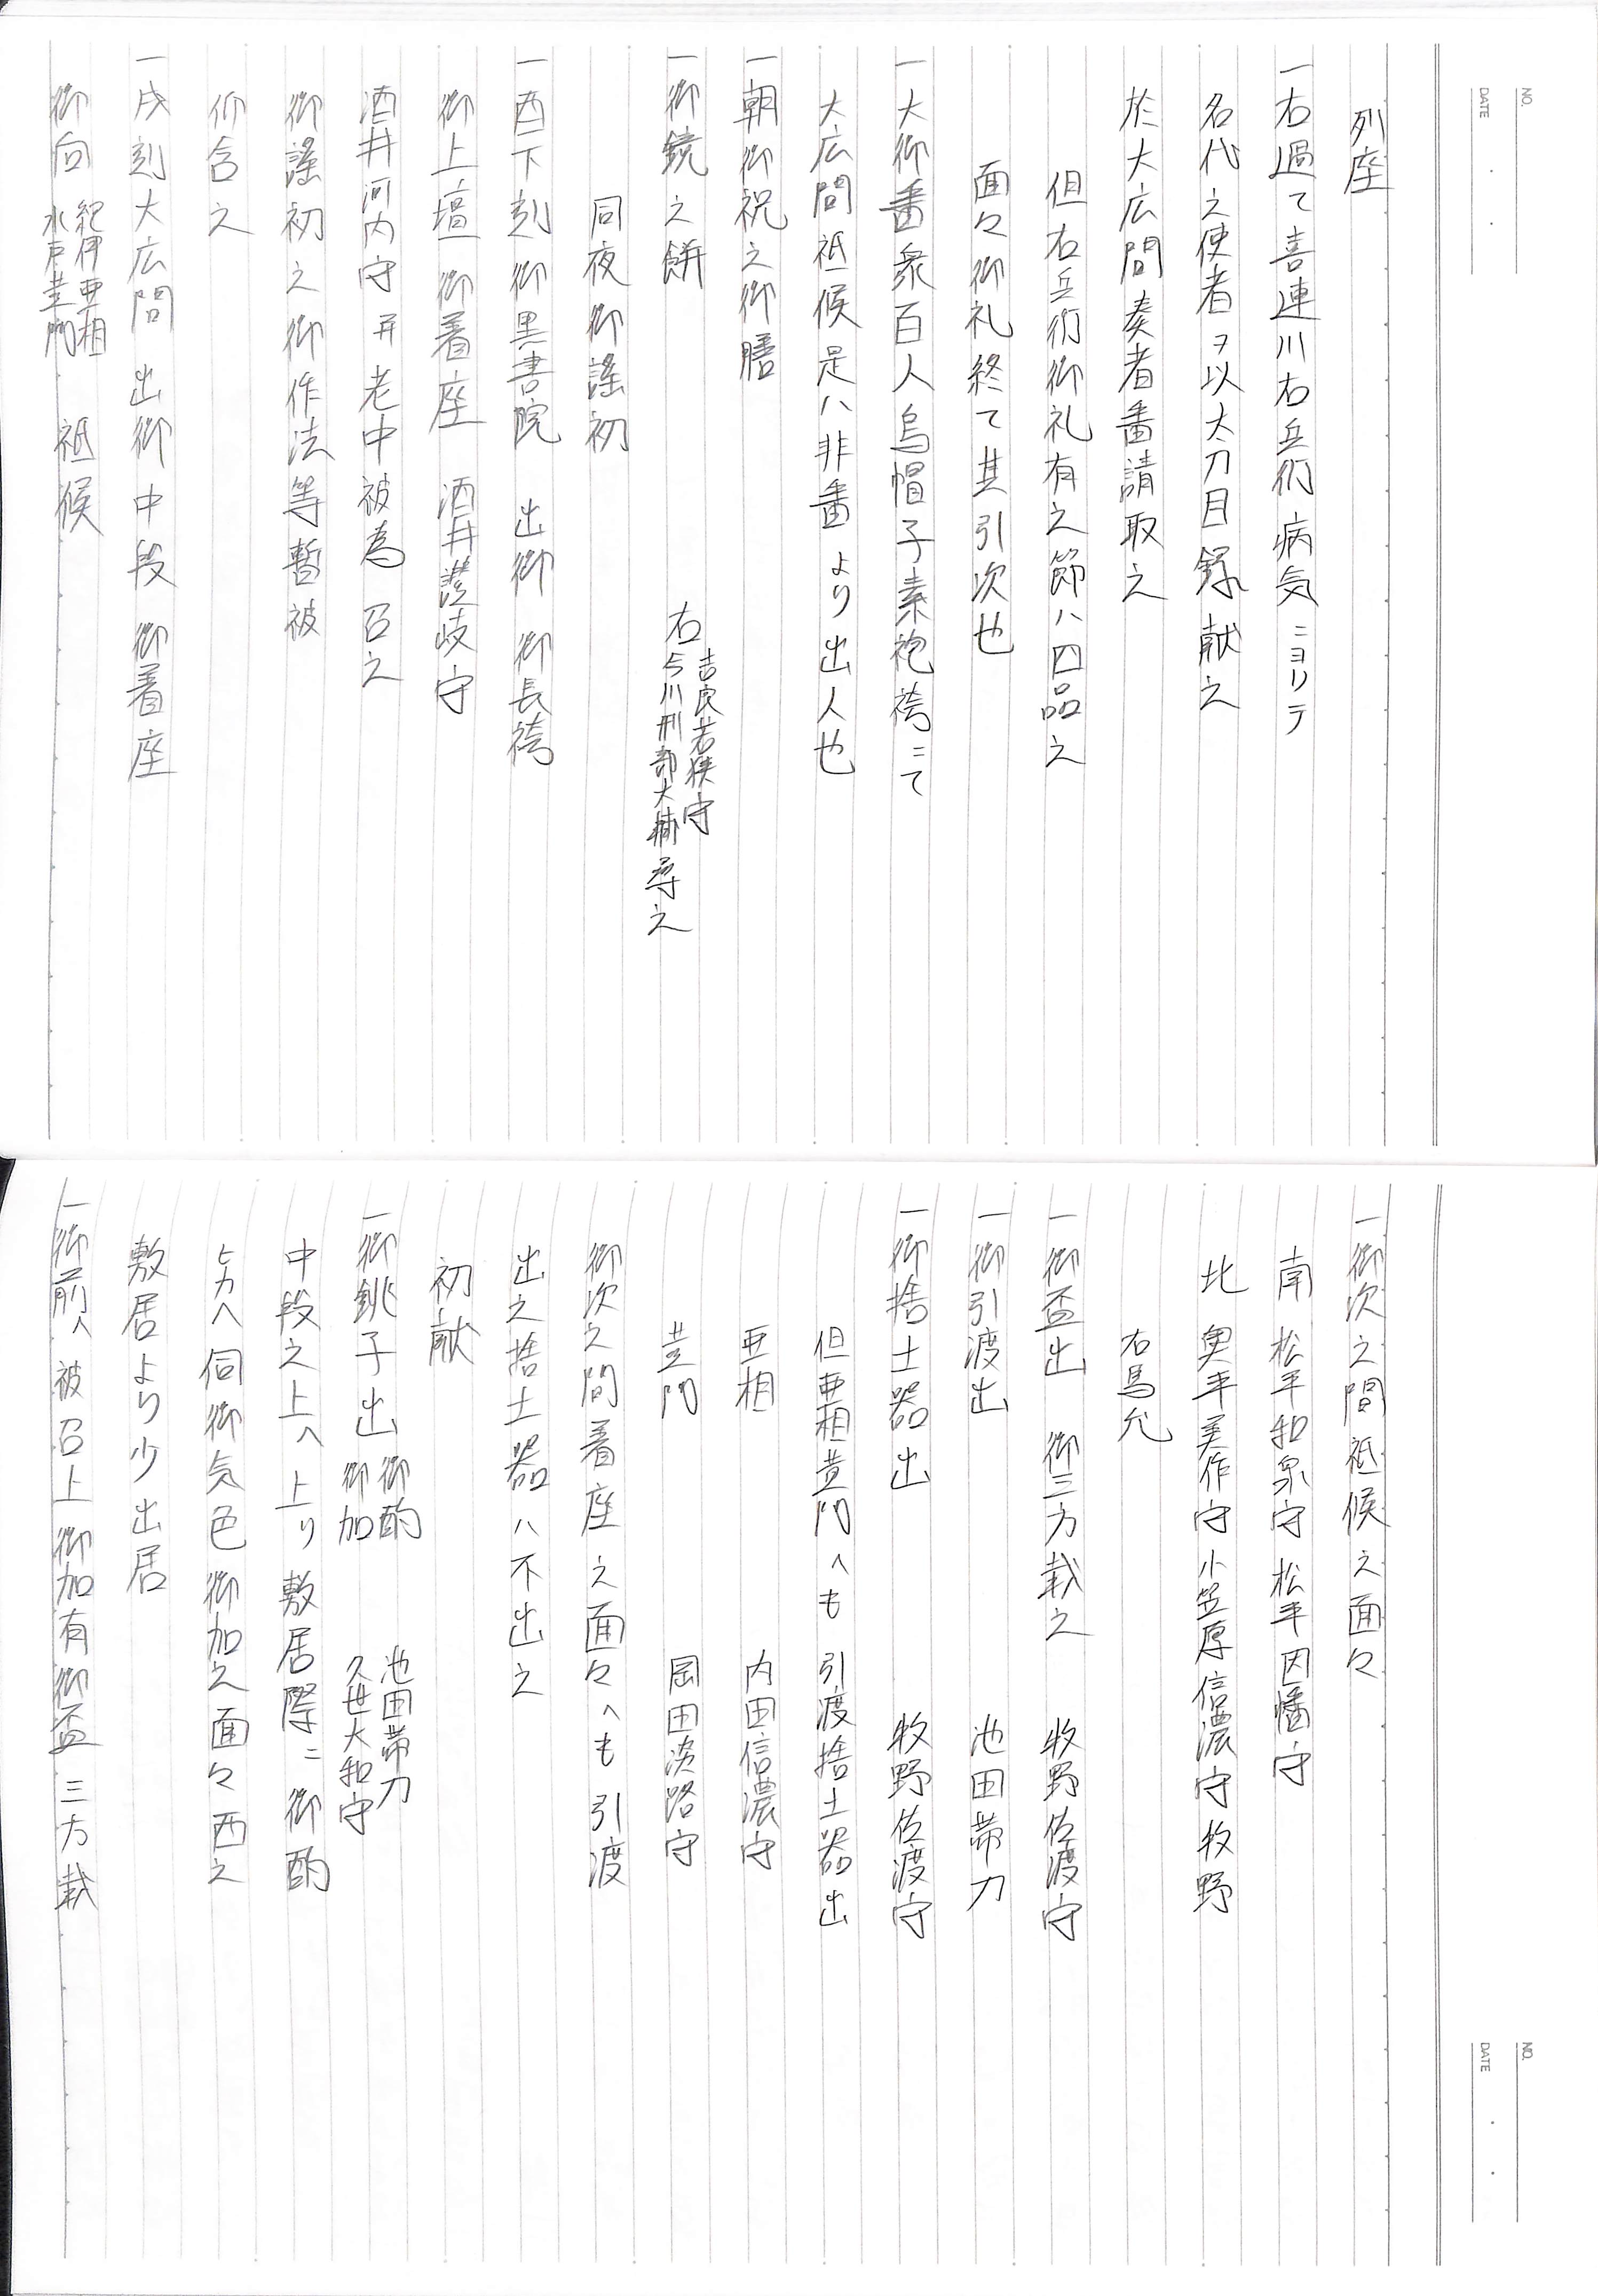 NO.
DATE
列座
一右過て喜連川右兵衛病気ニヨリテ
名代之使者ヲ以太刀目録献之
於大広間奏者番請取之
但右兵衛御礼有之節ハ四品之
面々御礼終て其引次也
一大御番衆百人烏帽子素袍袴ニて
大広間祗候是ハ非番より出人也
一朝御祝之御膳
一御鏡之餅 右 吉良若狭守
今川刑部大輔 尋之
同夜御謡初
一酉下刻御黒書院 出御 御長袴
御上壇 御着座 酒井讃岐守
酒井河内守 并老中被為 召之
御謡初之御作法等暫被
仰含之
一戌刻大広間 出御中段 御着座
御向 紀伊亜相
水戸黄門 祗候
NO.
DATE
一御次之間祗候之面々
南 松平和泉守 松平因幡守
北 奥平美作守 小笠原信濃守 牧野
右馬允
一御盃出 御三方載之 牧野佐渡守
一御引渡出 池田帯刀
一御捨土器出 牧野佐渡守
但亜相黄門へも 引渡捨土器出
亜相 内田信濃守
黄門 岡田淡路守
御次之間着座之面々へも引渡
出之捨土器ハ不出之
初献
一御銚子出 御酌 池田帯刀
御加 久世大和守
中段之上へ上り敷居際ニ御酌
ヒカヘ伺御気色御加之面々西之
敷居より少出居
一御前へ被召上御加有御盃三方載